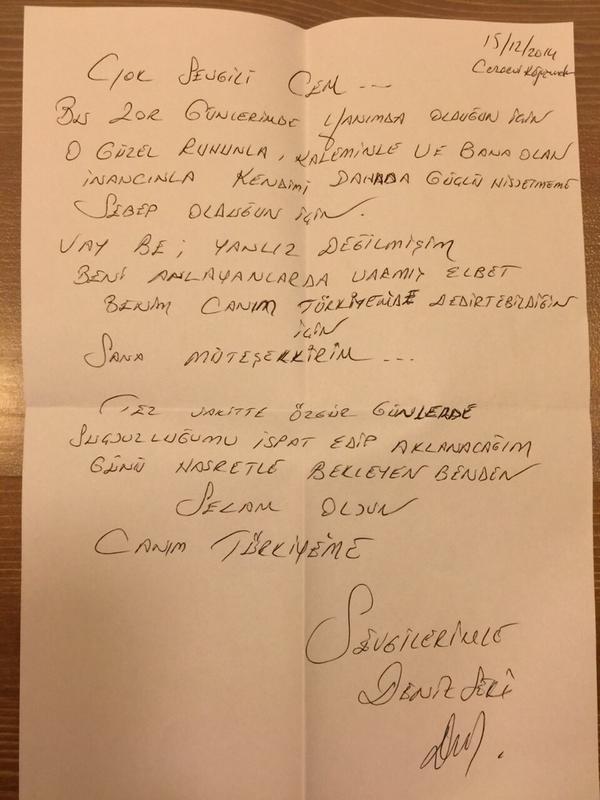 15/12/2014
Cezaevi Köşemden
Çok Sevgili Cem ---
Bu zor günlerimde yanımda olduğun için
o güzel ruhunla, kaleminle ve bana olan
inancınla kendimi dahada güçlü hissetmeme
sebep olduğun için.
Vay be; yanlız değilmişim
beni anlayanlarda varmış elbet
benim canım Türkiyemde dedirtebildiğin
için
Sana müteşekkirim ---
Tez vakitte özgür günlerde
suçsuzluğumu ispat edip aklanacağım
günü hasretle bekleyen benden
Selam olsun
Canım Türkiyeme
Sevgilerimle
Deniz Seki